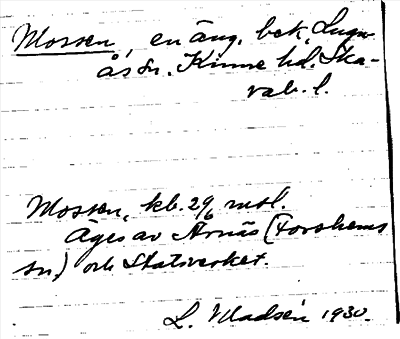 Mossen, en äng, bek, Lugn-
ås sn. Kinne hd. Ska-
rab. l.
Mossen, kb. 29/6 mtl.
Äges av Årnäs (Forshems
sn.) och Statsverket.
L. Madsén 1930.